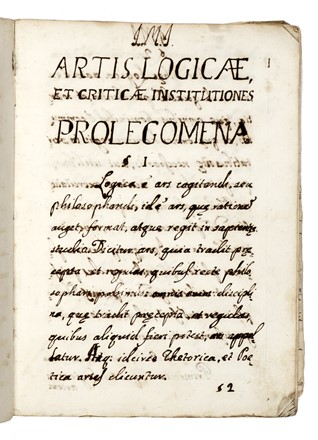 ARTIS LOGICÆ,
ET CRITICÆ INSTITUTIONES
PROLEGOMENA
§ I
1
Logica ē ars cogitandi, seu
philosophandi, id ē ars, quę rationē
auget, format, atque regit in sapientię
studio. Dicitur ars, quia tradit prę
cepta et regulas, quibus recte philo
sophari possimus: omnis enim discipli
na, quę tradit pręcepta, et regulas,
quibus aliquid fieri potest, ars appel
latur. idcirco Rhetorica, et Poe
tica artes dicuntur.
§ 2